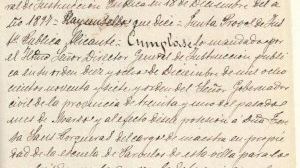 ral de Instrucción Publica en 18 de Diciembre del a
ño 1897 = Hay un sello que dice = Junta Prov.al de Ins
t.n Publica Alicante = Cumplase lo mandado por
el Ilmo Señor Director General de Instrucción públi
ca en su orden diez y ocho de Diciembre de mil ocho
cientos noventa y siete, y orden del Señor Gobernador
civil de la provincia de treinta y uno del pasado
mes de y al efecto dése posesión a Dña
del cargo de maestra en propie
dad de la Escuela de Parvulos de esta villa para la